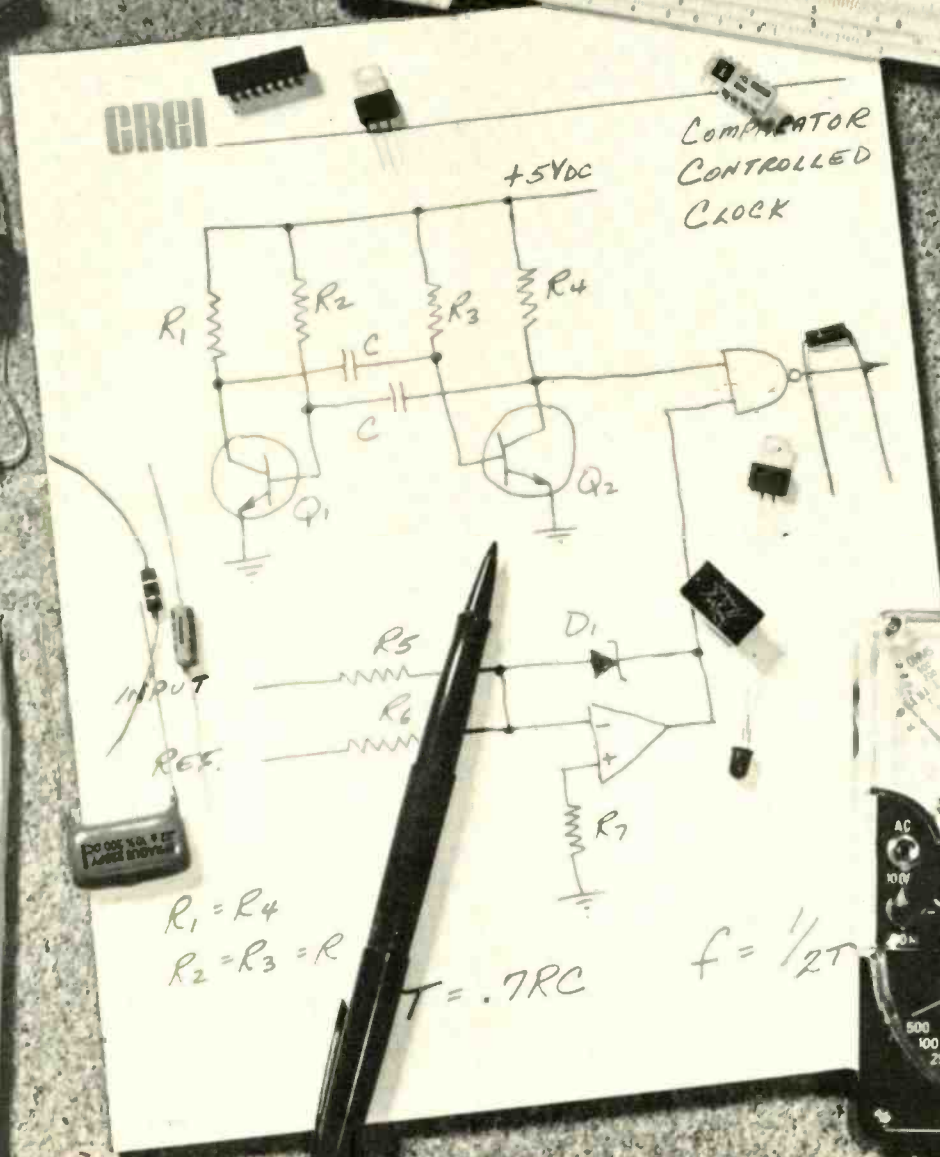 CREI
COMPARATOR
CONTROLLED
CLOCK
+5VDC
R1
R2
R3
R4
C
C
Q1
Q2
D1
R5
INPUT
R6
REF.
R7
R1 = R4
R2 = R3 = R
T = .7RC
f = 1/2T
AC
OHMS
500
100